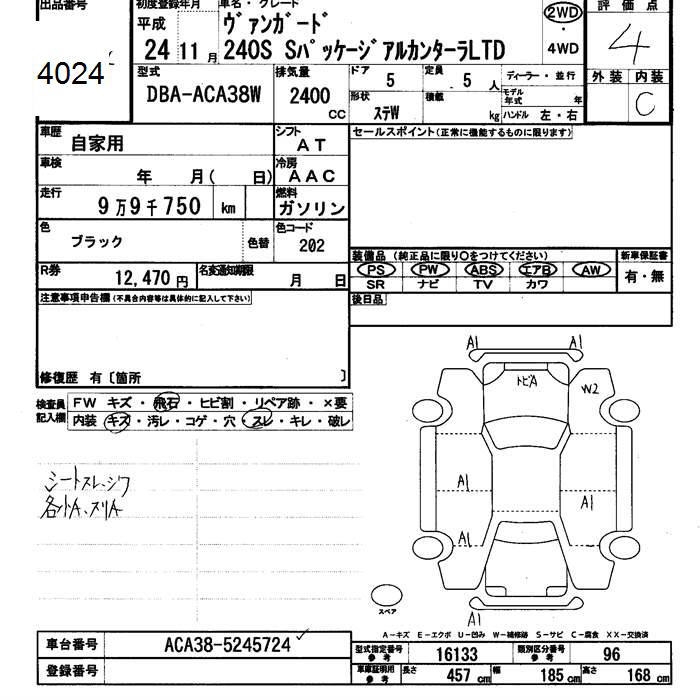 出品番号 初度登録年月 車名・グレード 評価点
平成 ヴァンガード 2WD
・
24 11月 240S SパッケージアルカンターラLTD 4WD 4
4024
型式 排気量 ドア 5 定員 5人 ディーラー・並行 外装 内装
DBA-ACA38W 2400 CC 形状 ステW 積載 kg モデル年式 年 C
ハンドル 左・右
車歴 自家用 シフト AT セールスポイント(正常に機能するものに限ります)
車検 年 月( 日) 冷房 AAC
走行 9万9千750 km 燃料 ガソリン
色 ブラック 色替 色コード 202
装備品 (純正品に限り○をつけてください) 新車保証書
R券 12,470円 名変通知期限 月 日 PS PW ABS エアB AW 有・無
SR ナビ TV カワ
注意事項申告欄(不具合内容等は具体的に記入して下さい) 後日品
修復歴 有〔箇所 〕
検査員記入欄 FW キズ・飛石・ヒビ割・リペア跡・×要
内装 キズ・汚レ・コゲ・穴・スレ・キレ・破レ
シートスレ、シワ
各小A、スリA
A1 A1
トビA W2
A1 A1
A1
A1
スペア
A-キズ E-エクボ U-凹み W-補修跡 S-サビ C-腐食 XX-交換済
車台番号 ACA38-5245724 型式指定番号 参考 16133 類別区分番号 参考 96
登録番号 車庫証明用 参考 長さ 457cm 幅 185cm 高さ 168cm